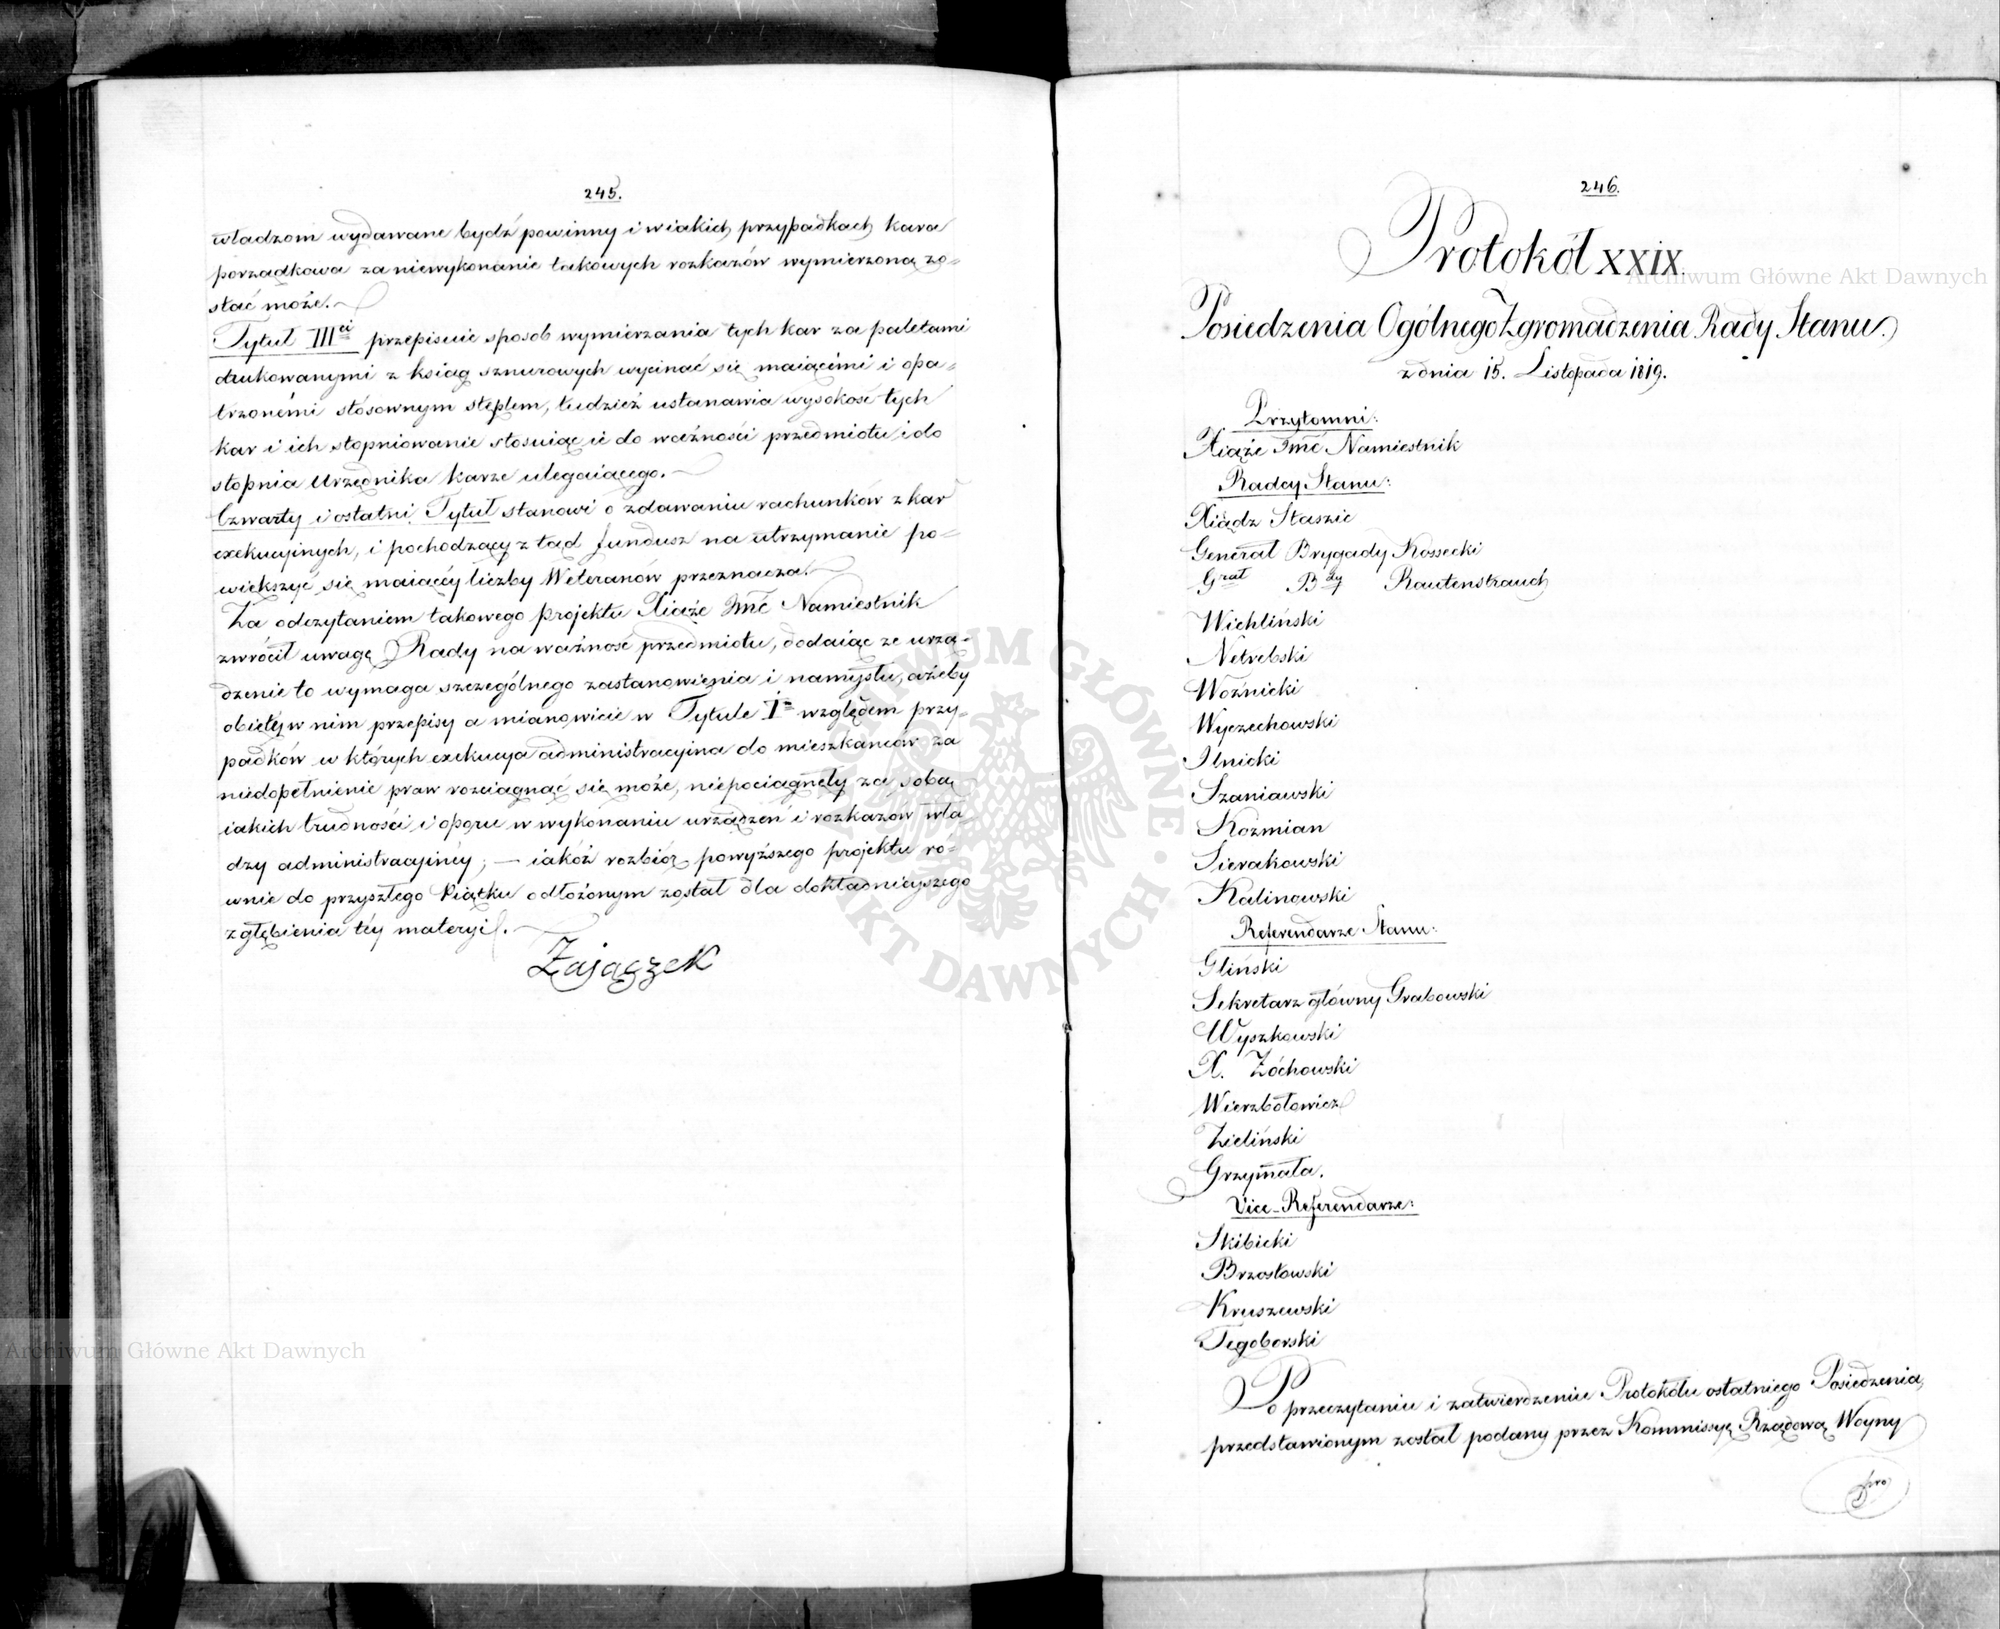 245.
władzom wydawane bydź powinny i w iakich przypadkach kara
porządkowa za niewykonanie takowych rozkazów wymierzoną zo=
stać może.
Tytuł III<sup>ci</sup> przepisuie sposob wymierzania tych kar za paletami
drukowanymi z ksiąg sznurowych wycinać się maiącémi i opa=
trzonémi stósownym stęplem, tudzież ustanawia wysokość tych
kar i ich stopniowanie stosuiąc ie do ważności przedmiotu i do
stopnia Urzędnika karze ulegaiącego.
Czwarty i ostatni Tytuł stanowi o zdawaniu rachunków z kar
exekucyinych, i pochodzący z tąd fundusz na utrzymanie po=
większyć się maiącéy liczby Weteranów przeznacza.
Za odczytaniem takowego projektu Xiąże Jmć Namiestnik
zwrócił uwagę Rady na ważność przedmiotu, dodaiąc że urzą=
dzenie to wymaga szczególnego zastanowienia i namysłu, ażeby
obięte w nim przepisy a mianowicie w Tytule I<sup>m</sup> względem przy=
padków w których exekucya administracyina do mieszkańców za
niedopełnienie praw rozciągnąć się może, niepociągnęły za sobą
iakich trudności i oporu w wykonaniu urządzeń i rozkazów wła=
dzy administracyinéy; — iakóż rozbiór powyższego projektu ró=
wnie do przyszłego Piątku odłożonym został dla dokładnieyszego
zgłębienia téy materyi.
Zajączek
246.
Protokół XXIX.
Posiedzenia Ogólnego Zgromadzenia Rady Stanu.
z dnia 15. Listopada 1819.
Przytomni:
Xiąże Jmć Namiestnik
Radcy Stanu:
Xiądz Staszic
Generał Brygady Kossecki
G<sup>rał</sup> B<sup>dy</sup> Rautenstrauch
Wichliński
Netrebski
Woźnicki
Wyczechowski
Ilnicki
Szaniawski
Koźmian
Sierakowski
Kalinowski
Referendarze Stanu:
Gliński
Sekretarz główny Grabowski
Wyszkowski
X. Żóchowski
Wierzbołowicz
Zieliński
Grzymała.
Vice-Referendarze:
Skibicki
Brzostowski
Kruszewski
Tęgoborski
Po przeczytaniu i zatwierdzeniu Protokółu ostatniego Posiedzenia,
przedstawionym został podany przez Kommissyą Rządową Woyny
pro
Archiwum Główne Akt Dawnych
Archiwum Główne Akt Dawnych
ARCHIWUM GŁÓWNE AKT DAWNYCH